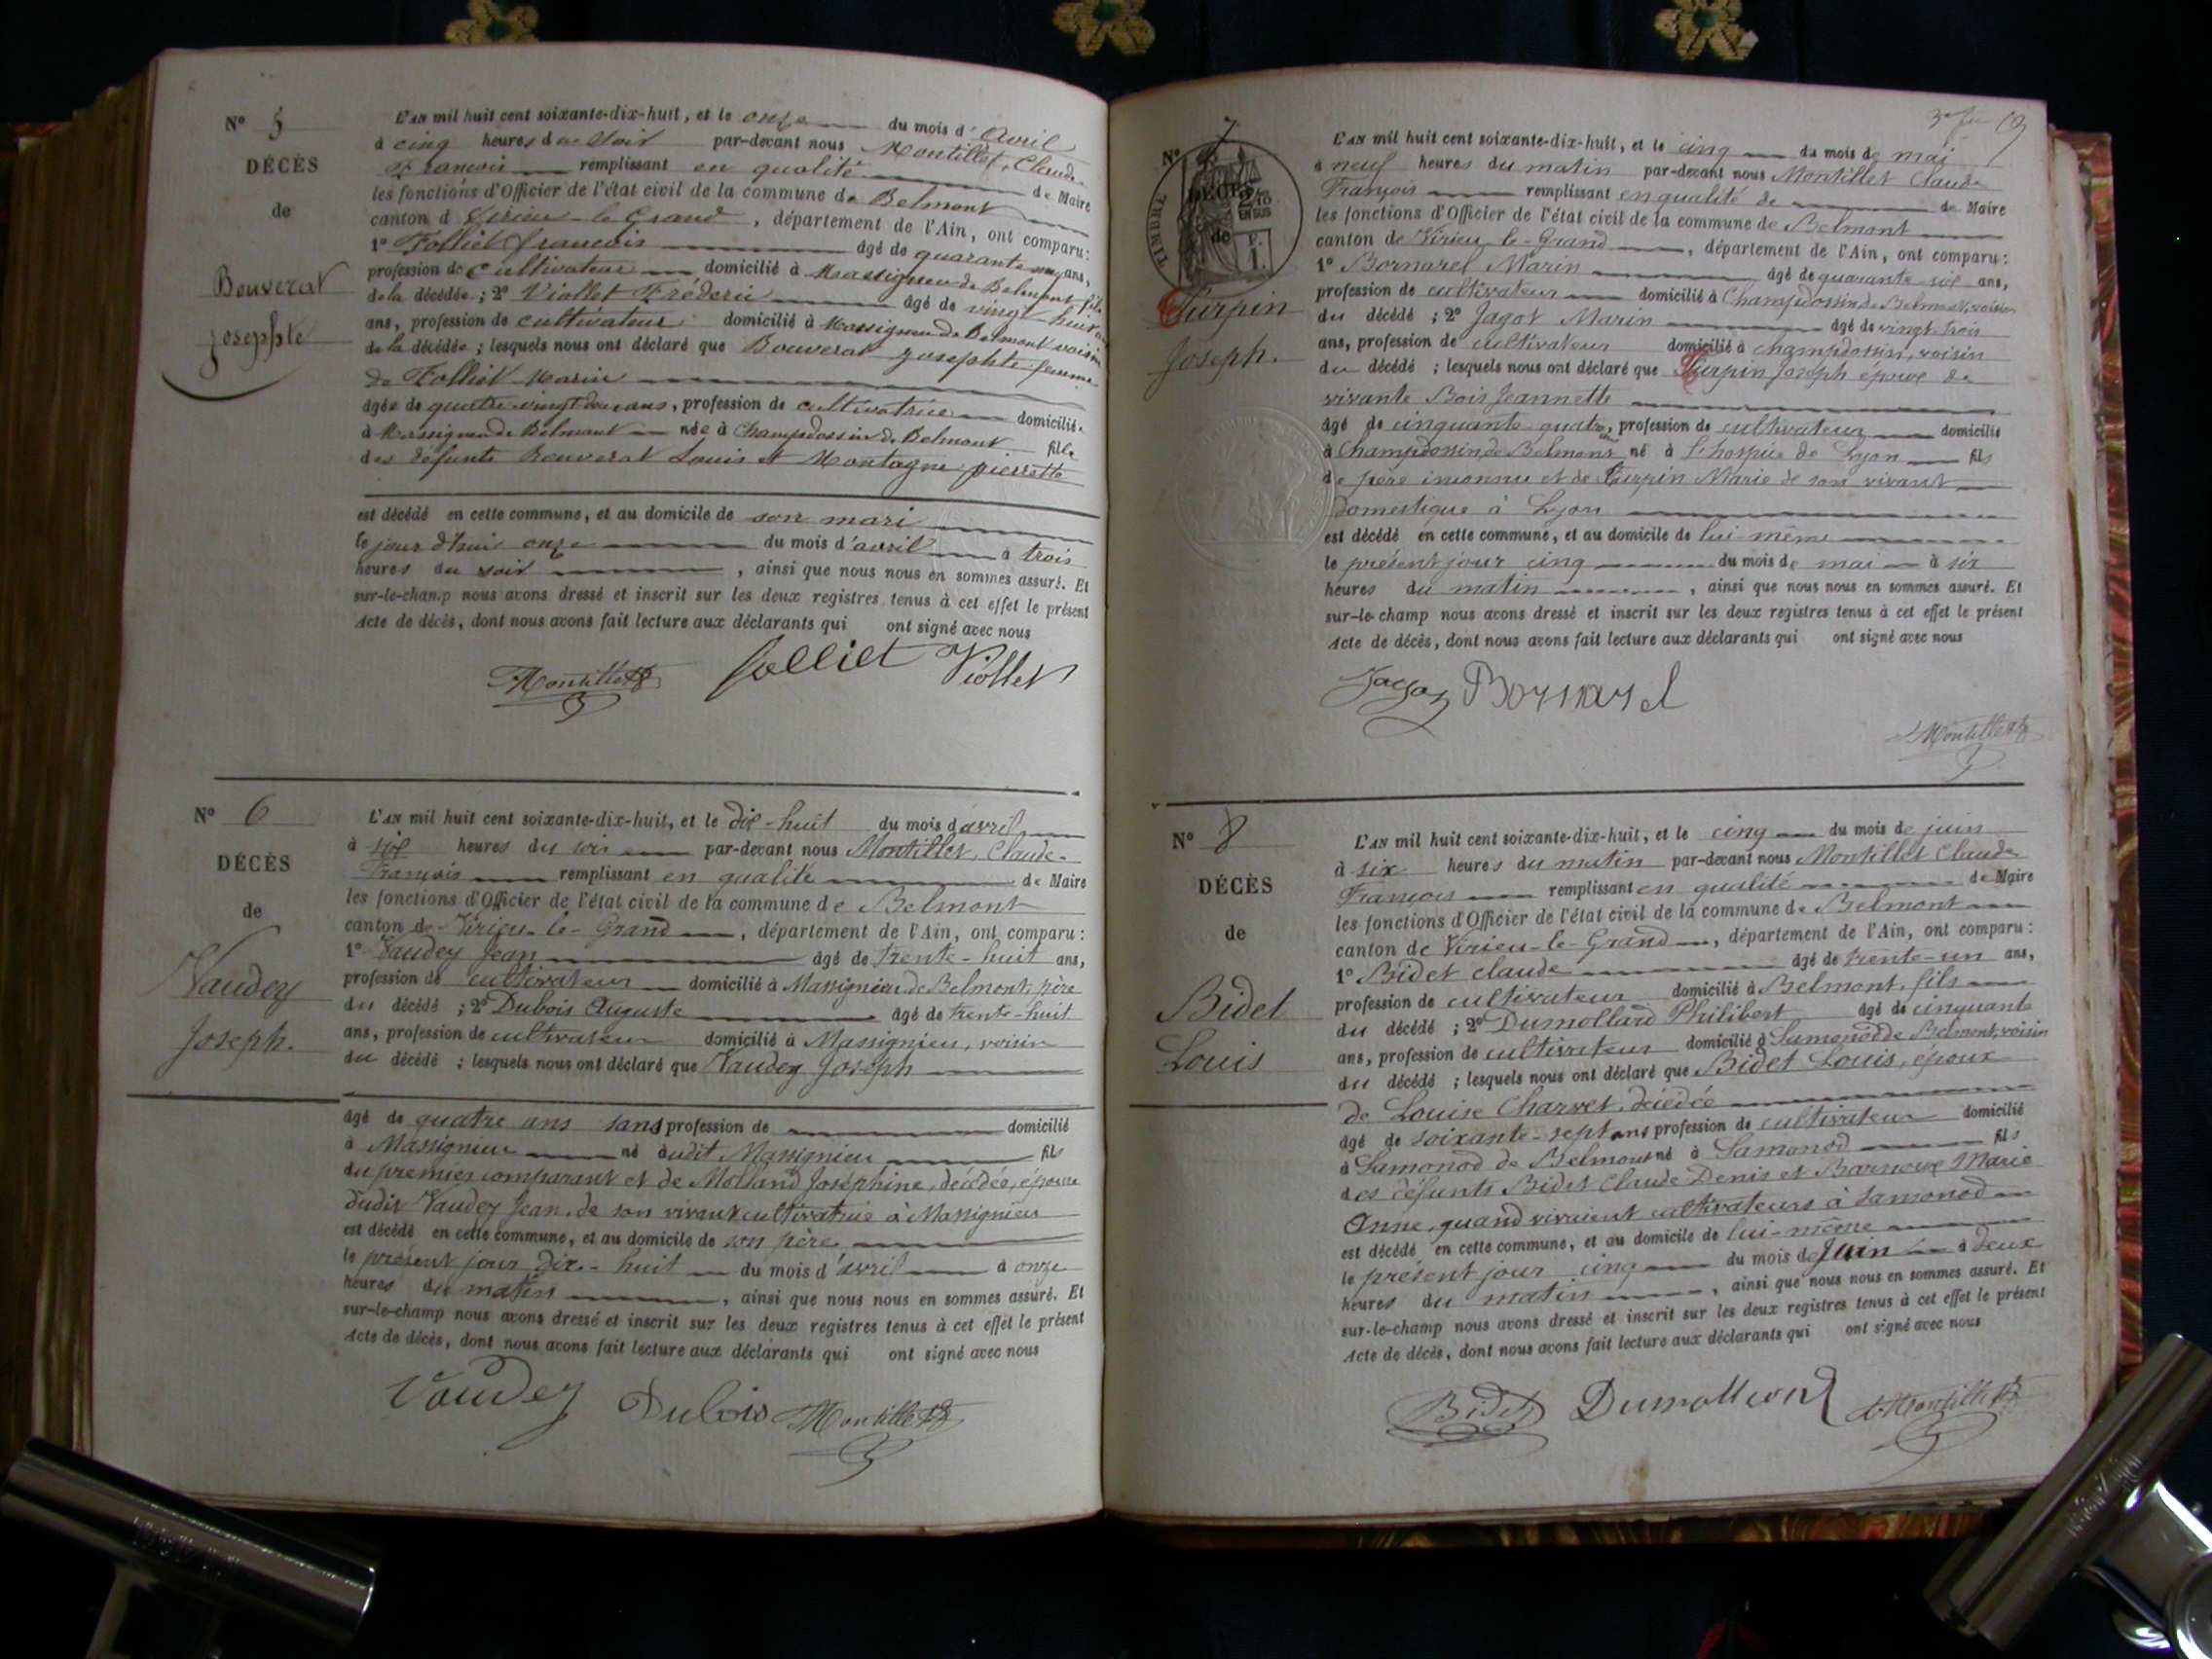 N° 5
DÉCÈS
de
Bouverat
Josephte
L'AN mil huit cent soixante-dix-huit, et le onze du mois d'Avril
à cinq heures du Soir par-devant nous Montillet, Claude
François remplissant en qualité de Maire
les fonctions d'Officier de l'état civil de la commune de Belmont
canton d Virieu-le-Grand, département de l'Ain, ont comparu:
1° Folliet françois âgé de quarante ans,
profession de cultivateur domicilié à Massignieu de Belmont, fils
de la décédée; 2° Viollet Fréderic âgé de vingt huit
ans, profession de cultivateur domicilié à Massignieu de Belmont voisin
de la décédée; lesquels nous ont déclaré que Bouverat Josephte femme
de Folliet Marin
âgée de quatre-vingt ans, profession de cultivatrice domiciliée
à Massignieu de Belmont née à Champdossin de Belmont fille
des défunts Bouverat Louis et Montagne pierrette
est décédé en cette commune, et au domicile de son mari
le jour d'hui onze du mois d'avril à trois
heures du soir, ainsi que nous nous en sommes assuré. Et
sur-le-champ nous avons dressé et inscrit sur les deux registres tenus à cet effet le présent
Acte de décès, dont nous avons fait lecture aux déclarants qui ont signé avec nous
Montillet Folliet Viollet
N° 6
DÉCÈS
de
Vaudey
Joseph.
L'AN mil huit cent soixante-dix-huit, et le dix-huit du mois d'avril
à six heures du soir par-devant nous Montillet, Claude-
François remplissant en qualité de Maire
les fonctions d'Officier de l'état civil de la commune de Belmont
canton de Virieu-le-Grand, département de l'Ain, ont comparu:
1° Vaudey Jean âgé de trente-huit ans,
profession de cultivateur domicilié à Massignieu de Belmont, père
du décédé; 2° Dubois Auguste âgé de trente-huit
ans, profession de cultivateur domicilié à Massignieu, voisin
du décédé; lesquels nous ont déclaré que Vaudey Joseph
âgé de quatre ans sans profession de domicilié
à Massignieu né audit Massignieu fils
du premier comparant et de Molland Joséphine, décédée, épouse
dudit Vaudey Jean, de son vivant cultivatrice à Massignieu
est décédé en cette commune, et au domicile de son père
le présent jour dix-huit du mois d'avril à onze
heures du matin, ainsi que nous nous en sommes assuré. Et
sur-le-champ nous avons dressé et inscrit sur les deux registres tenus à cet effet le présent
Acte de décès, dont nous avons fait lecture aux déclarants qui ont signé avec nous
Vaudey Dubois Montillet
N° 7
DÉCÈS
de
TIMBRE
Turpin
Joseph.
L'AN mil huit cent soixante-dix-huit, et le cinq du mois de mai
à neuf heures du matin par-devant nous Montillet Claude
François remplissant en qualité de de Maire
les fonctions d'Officier de l'état civil de la commune de Belmont
canton de Virieu-le-Grand, département de l'Ain, ont comparu:
1° Bornarel Marin âgé de quarante six ans,
profession de cultivateur domicilié à Champdossin de Belmont, voisin
du décédé; 2° Jagot Marin âgé de vingt-trois
ans, profession de cultivateur domicilié à champdossin, voisin
du décédé; lesquels nous ont déclaré que Turpin Joseph epoux de
vivante Bois Jeannette
âgé de cinquante quatre, profession de cultivateur domicilié
à Champdossin de Belmont né à l'hospice de Lyon fils
de père inconnu et de Turpin Marie de son vivant
domestique à Lyon
est décédé en cette commune, et au domicile de lui même
le présent jour cinq du mois de mai à six
heures du matin, ainsi que nous nous en sommes assuré. Et
sur-le-champ nous avons dressé et inscrit sur les deux registres tenus à cet effet le présent
Acte de décès, dont nous avons fait lecture aux déclarants qui ont signé avec nous
Jagot Bornarel
Montillet
N° 8
DÉCÈS
de
Bidet
Louis
L'AN mil huit cent soixante-dix-huit, et le cinq du mois de juin
à six heures du matin par-devant nous Montillet Claude
François remplissant en qualité de Maire
les fonctions d'Officier de l'état civil de la commune de Belmont
canton de Virieu-le-Grand, département de l'Ain, ont comparu:
1° Bidet claude âgé de trente-un ans,
profession de cultivateur domicilié à Belmont, fils
du décédé; 2° Dumollard Philibert âgé de cinquante
ans, profession de cultivateur domicilié à Samonod de Belmont, voisin
du décédé; lesquels nous ont déclaré que Bidet Louis, époux
de Louise Charvet, décédée
âgé de soixante-sept ans profession de cultivateur domicilié
à Samonod de Belmont né à Samonod fils
des défunts Bidet Claude Denis et Marie
Anne, quand vivaient cultivateurs à Samonod
est décédé en cette commune, et au domicile de lui-même
le présent jour cinq du mois de Juin à deux
heures du matin, ainsi que nous nous en sommes assuré. Et
sur-le-champ nous avons dressé et inscrit sur les deux registres tenus à cet effet le présent
Acte de décès, dont nous avons fait lecture aux déclarants qui ont signé avec nous
Bidet Dumollard Montillet